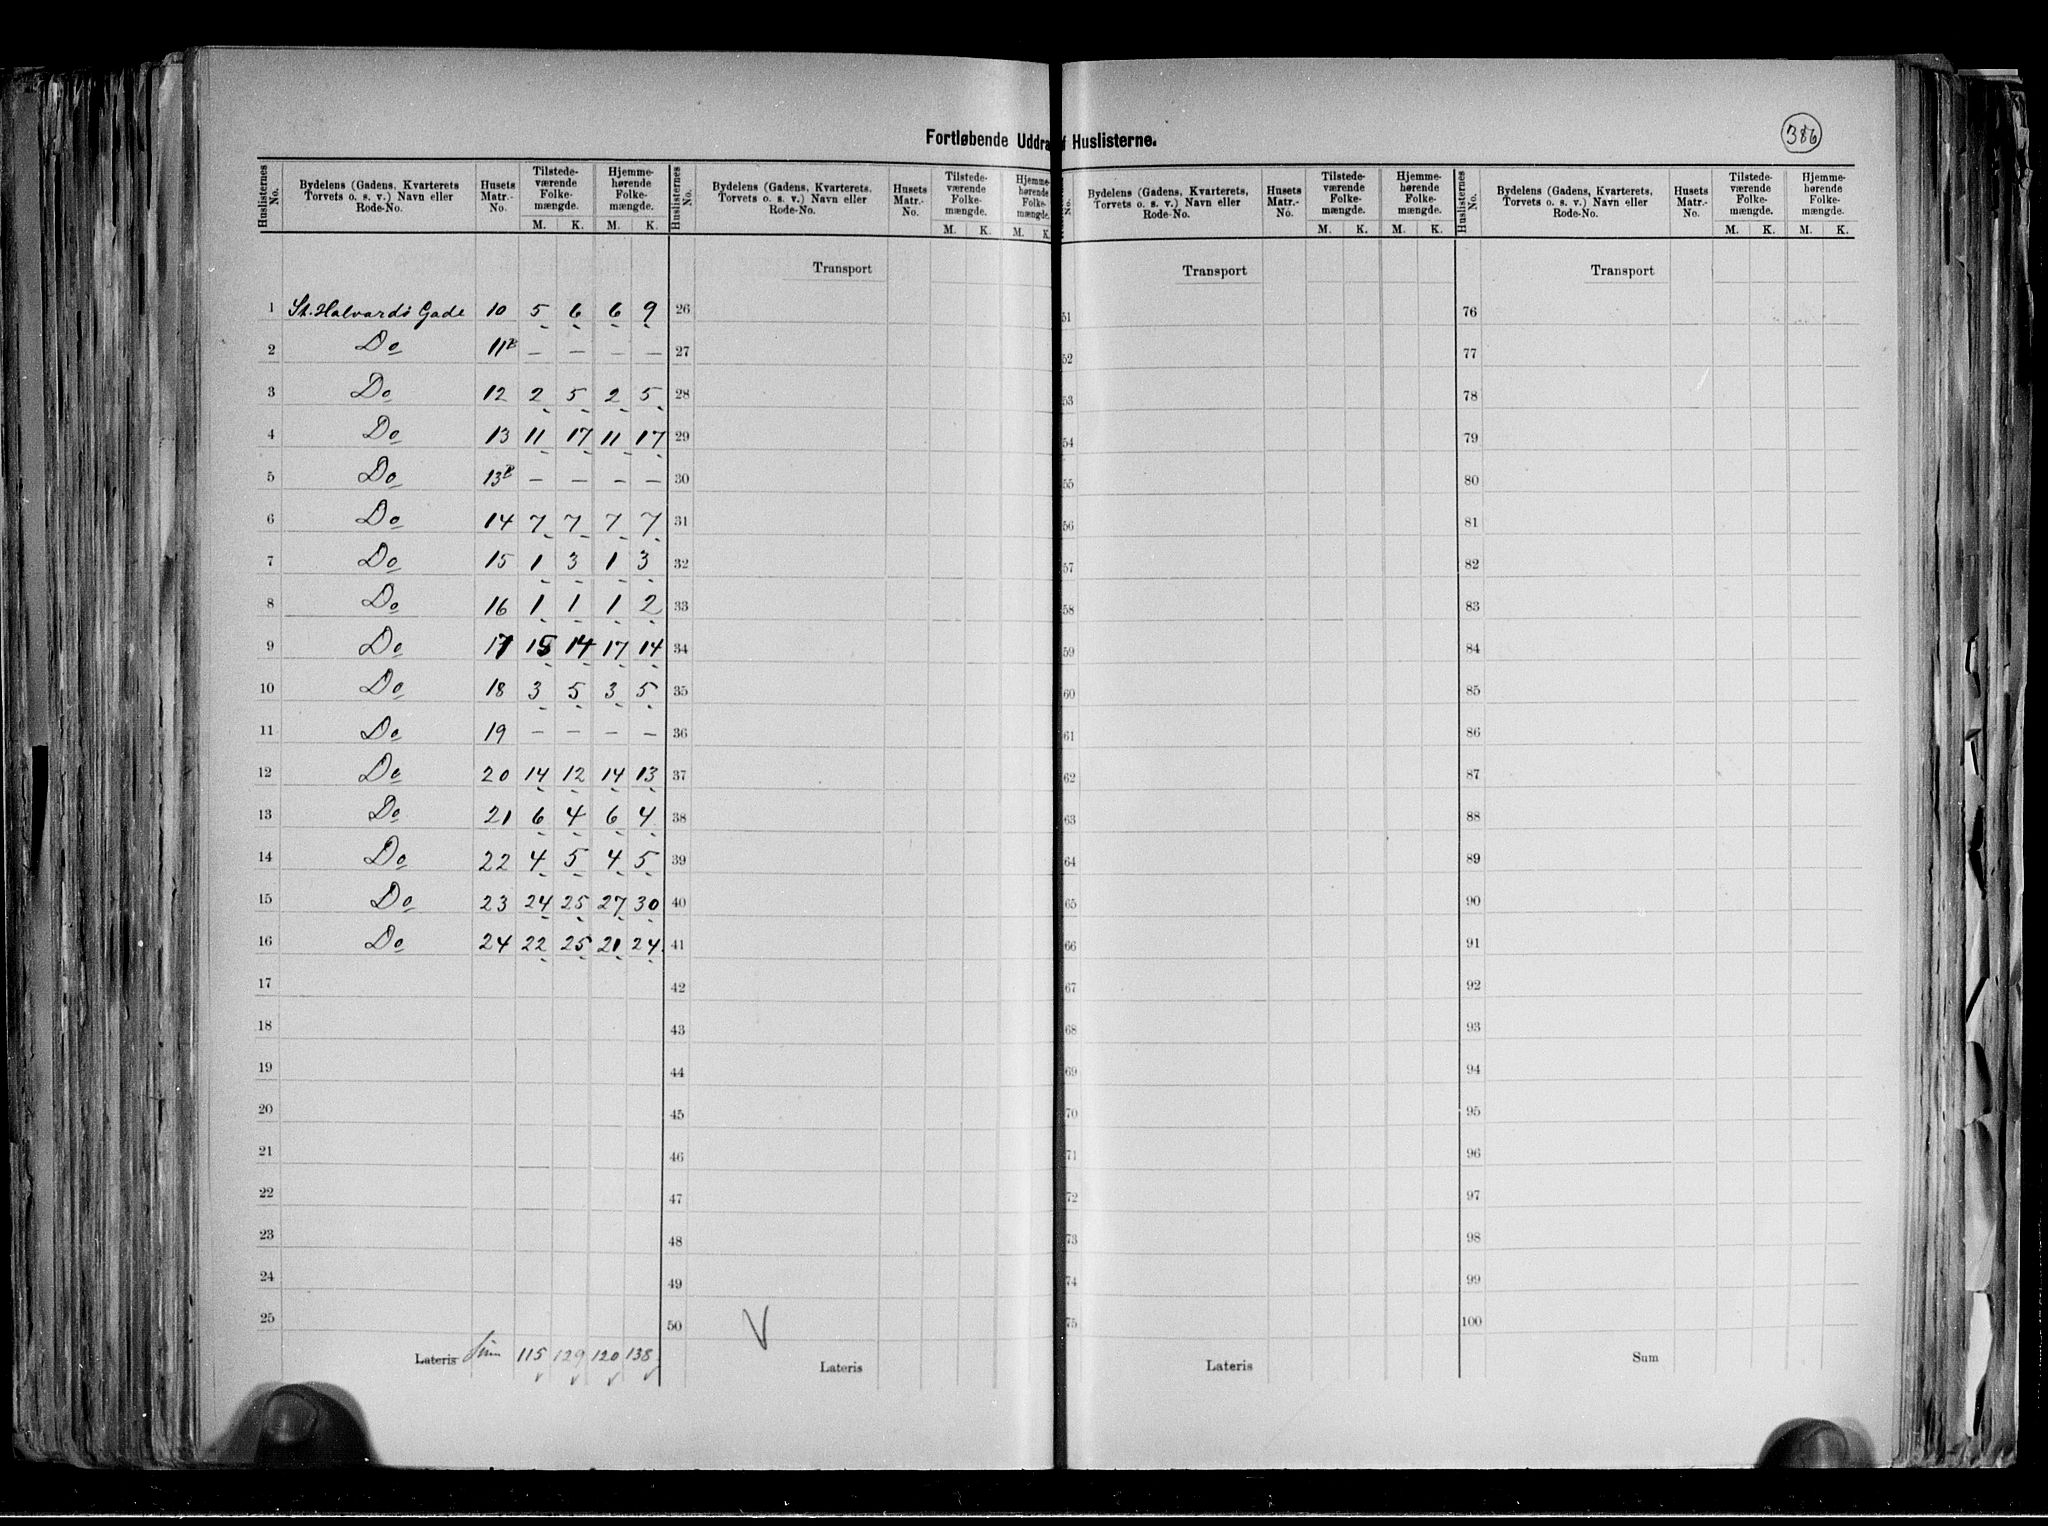 386
Fortløbende Uddra f Huslisterne.
Huslisternes No. | Bydelens (Gadens, Kvarterets Torvets o. s. v.) Navn eller Rode-No. | Husets Matr.-No. | Tilstede-værende Folke-mængde. M. K. | Hjemme-hørende Folke-mængde. M. K.
Huslisternes No. | Bydelens (Gadens, Kvarterets, Torvets o. s. v.) Navn eller Rode-No. | Husets Matr.-No. | Tilstede-værende Folke-mængde. M. K. | Hjemme-hørende Folke-mængde. M. K.
No. | Bydelens (Gadens, Kvarterets, Torvets o. s. v.) Navn eller Rode-No. | Husets Matr.-No. | Tilstede-værende Folke-mængde. M. K. | Hjemme-hørende Folke-mængde. M. K.
Huslisternes No. | Bydelens (Gadens, Kvarterets, Torvets o. s. v.) Navn eller Rode-No. | Husets Matr.-No. | Tilstede-værende Folke-mængde. M. K. | Hjemme-hørende Folke-mængde. M. K.
Transport Transport Transport
1 St. Halvards Gade 10 5 6 6 9 26 51 76
2 Do 11B – – – – 27 52 77
3 Do 12 2 5 2 5 28 53 78
4 Do 13 11 17 11 17 29 54 79
5 Do 13B – – – – 30 55 80
6 Do 14 7 7 7 7 31 56 81
7 Do 15 1 3 1 3 32 57 82
8 Do 16 1 1 1 2 33 58 83
9 Do 17 15 14 17 14 34 59 84
10 Do 18 3 5 3 5 35 60 85
11 Do 19 – – – – 36 61 86
12 Do 20 14 12 14 13 37 62 87
13 Do 21 6 4 6 4 38 63 88
14 Do 22 4 5 4 5 39 64 89
15 Do 23 24 25 27 30 40 65 90
16 Do 24 22 25 21 24 41 66 91
17 42 67 92
18 43 68 93
19 44 69 94
20 45 70 95
21 46 71 96
22 47 72 97
23 48 73 98
24 49 74 99
25 50 75 100
Lateris Sum 115 129 120 138 Lateris Lateris Sum